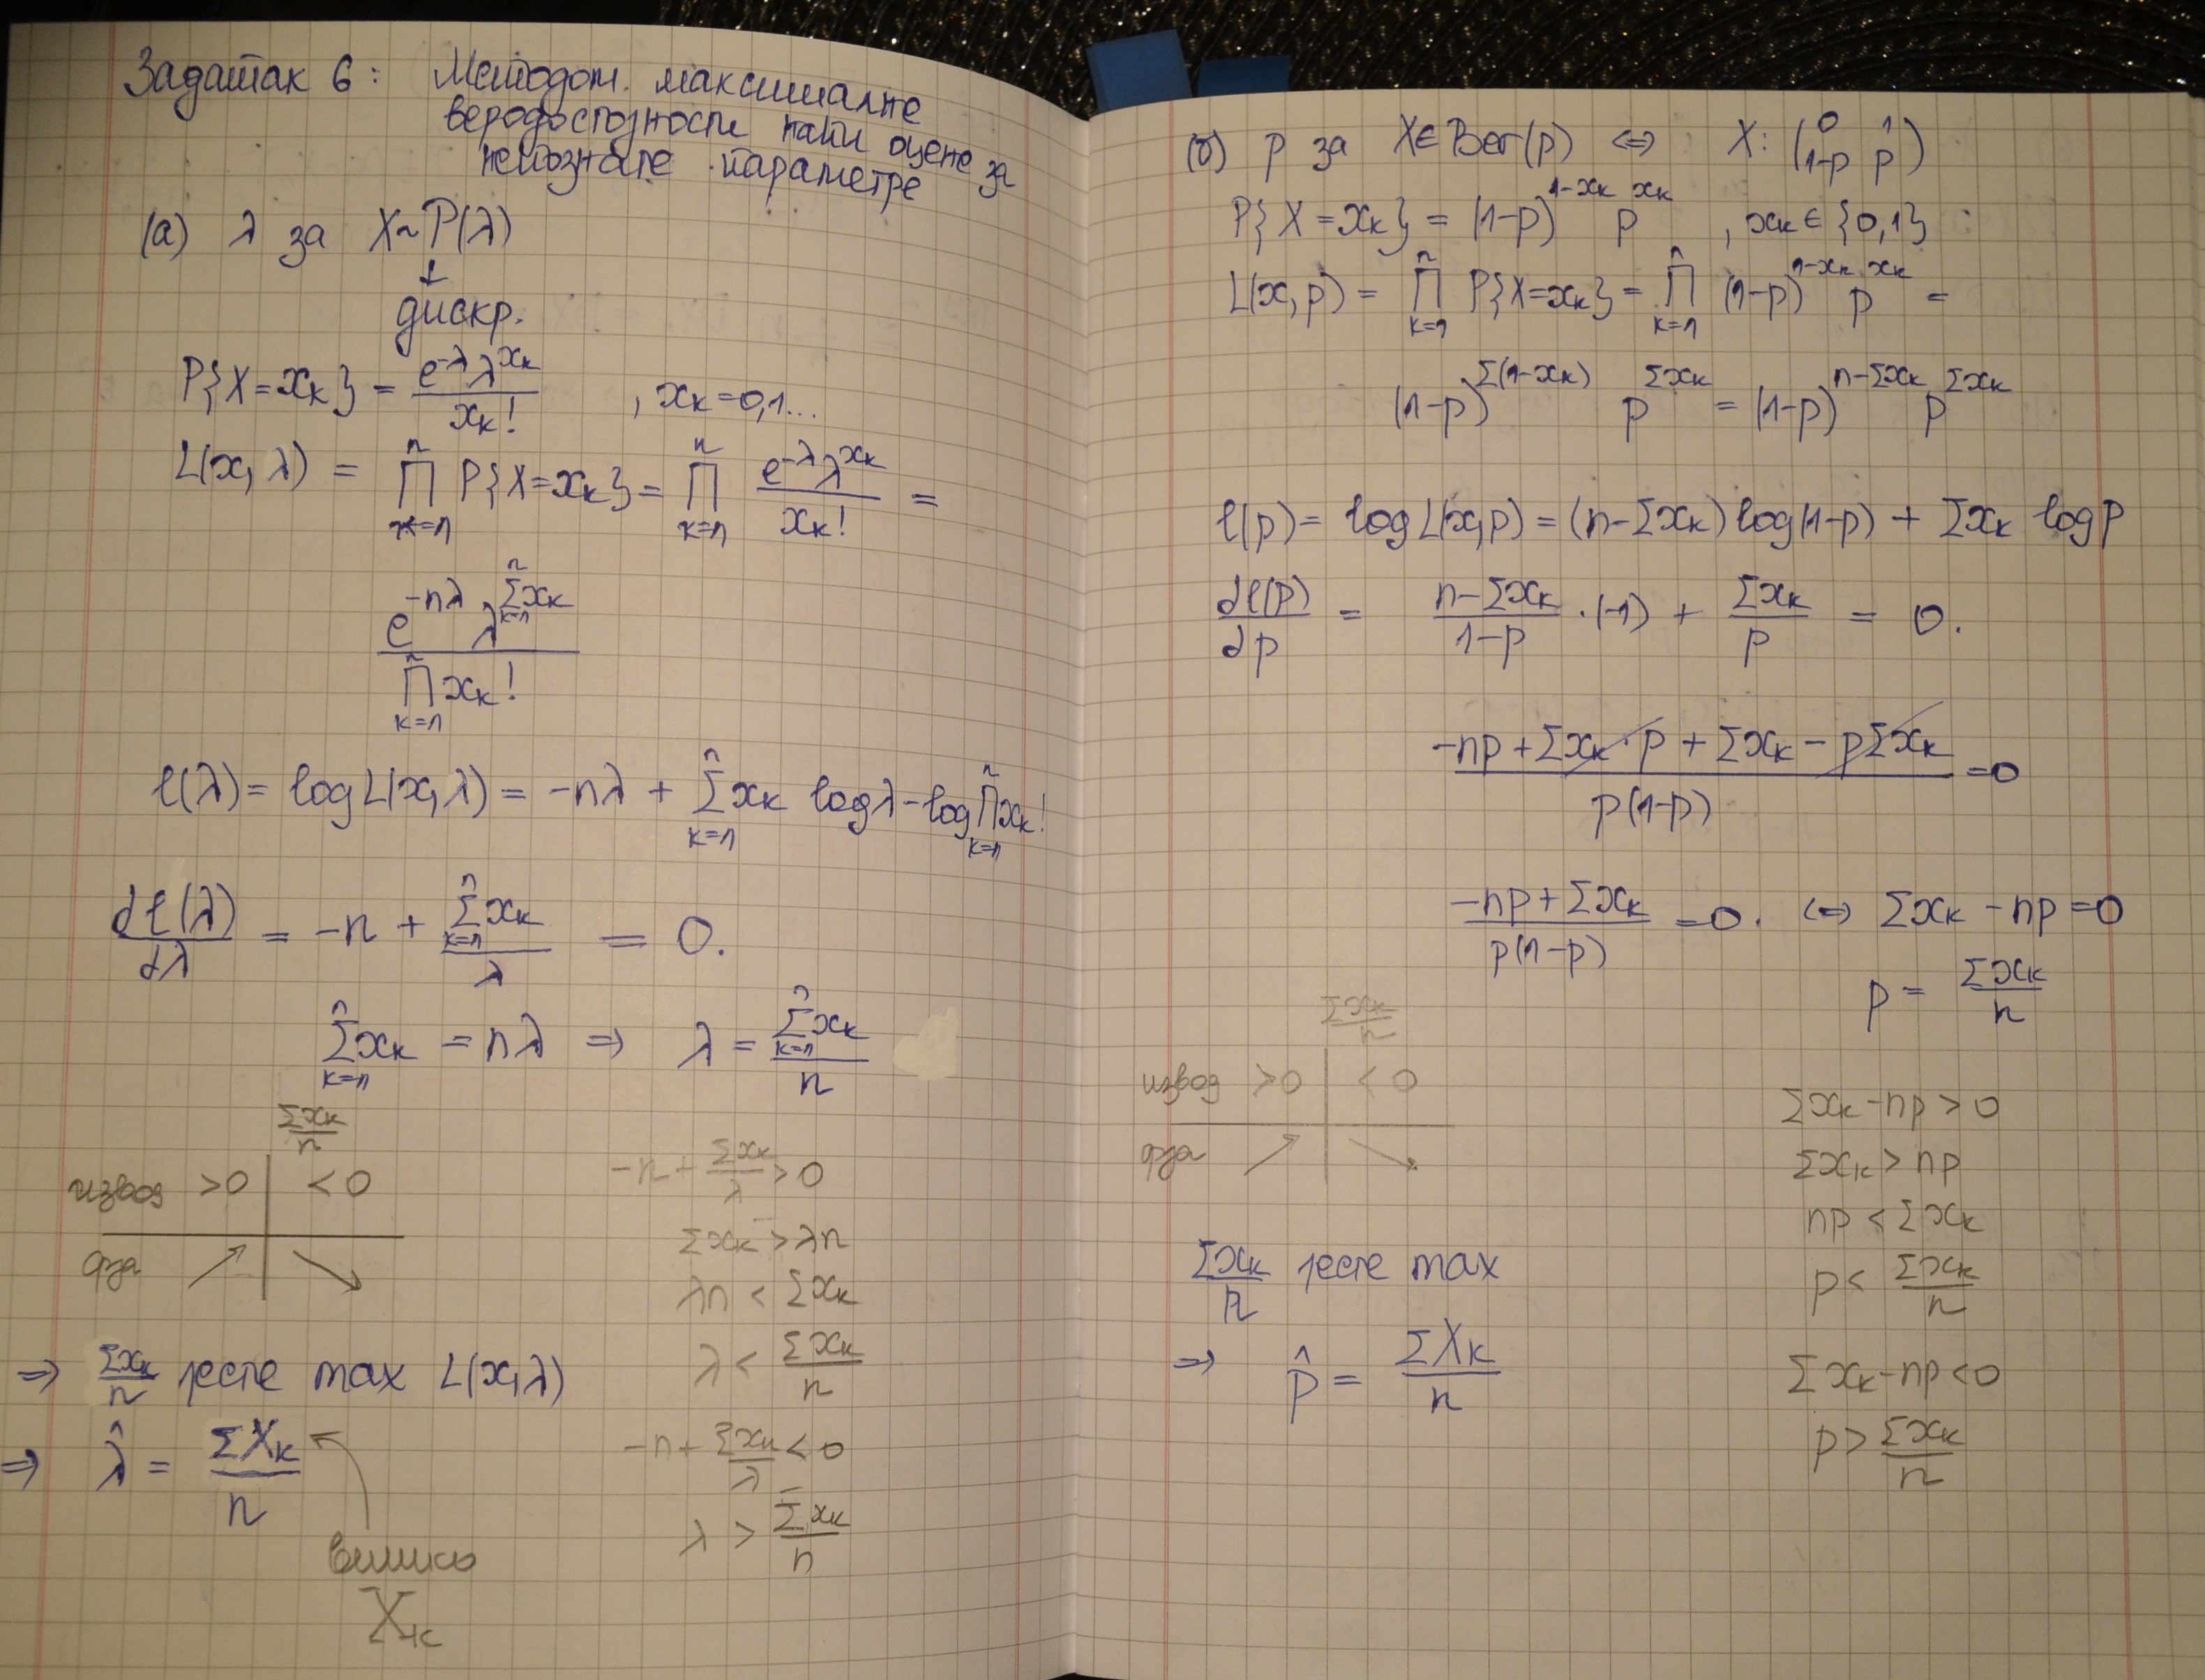 Задатак 6: Методом максималне
веродостојности наћи оцене за
непознате параметре
(а) λ за X~P(λ)
↓
дискр.
P{X=xₖ} = e^(-λ) λ^(xₖ) / xₖ! , xₖ=0,1...
L(x,λ) = ∏_{k=1}^{n} P{X=xₖ} = ∏_{k=1}^{n} e^(-λ) λ^(xₖ) / xₖ! =
e^(-nλ) λ^(∑_{k=1}^{n} xₖ) / ∏_{k=1}^{n} xₖ!
ℓ(λ) = log L(x,λ) = -nλ + ∑_{k=1}^{n} xₖ log λ - log ∏_{k=1}^{n} xₖ!
dℓ(λ)/dλ = -n + ∑_{k=1}^{n} xₖ / λ = 0.
∑_{k=1}^{n} xₖ = nλ ⇒ λ = ∑_{k=1}^{n} xₖ / n
∑xₖ/n
извод >0 | <0
фја ↗ | ↘
-n + ∑xₖ/λ > 0
∑xₖ > λn
λn < ∑xₖ
λ < ∑xₖ/n
-n + ∑xₖ/λ < 0
λ > ∑xₖ/n
⇒ ∑xₖ/n јесте max L(x,λ)
⇒ λ̂ = ∑Xₖ/n
велико
Xₖ
(б) p за X∈Ber(p) ⇔ X: (0 1
1-p p)
P{X=xₖ} = (1-p)^(1-xₖ) p^(xₖ) , xₖ∈{0,1}
L(x,p) = ∏_{k=1}^{n} P{X=xₖ} = ∏_{k=1}^{n} (1-p)^(1-xₖ) p^(xₖ) =
(1-p)^(∑(1-xₖ)) p^(∑xₖ) = (1-p)^(n-∑xₖ) p^(∑xₖ)
ℓ(p) = log L(x,p) = (n-∑xₖ) log(1-p) + ∑xₖ log p
dℓ(p)/dp = (n-∑xₖ)/(1-p) · (-1) + ∑xₖ/p = 0.
(-np + ∑xₖ·p + ∑xₖ - p∑xₖ) / p(1-p) = 0
(-np + ∑xₖ) / p(1-p) = 0. ⇔ ∑xₖ - np = 0
p = ∑xₖ/n
∑xₖ/n
извод >0 | <0
фја ↗ | ↘
∑xₖ - np > 0
∑xₖ > np
np < ∑xₖ
p < ∑xₖ/n
∑xₖ - np < 0
p > ∑xₖ/n
∑xₖ/n јесте max
⇒ p̂ = ∑Xₖ/n